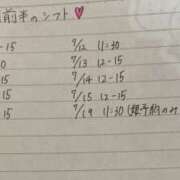 前半のシフト♥
-15 7/12 11:30
0 7/13 12-15
-15 7/14 12-15
-15 7/15 12-15
0 7/19 11:30 (予約のみ